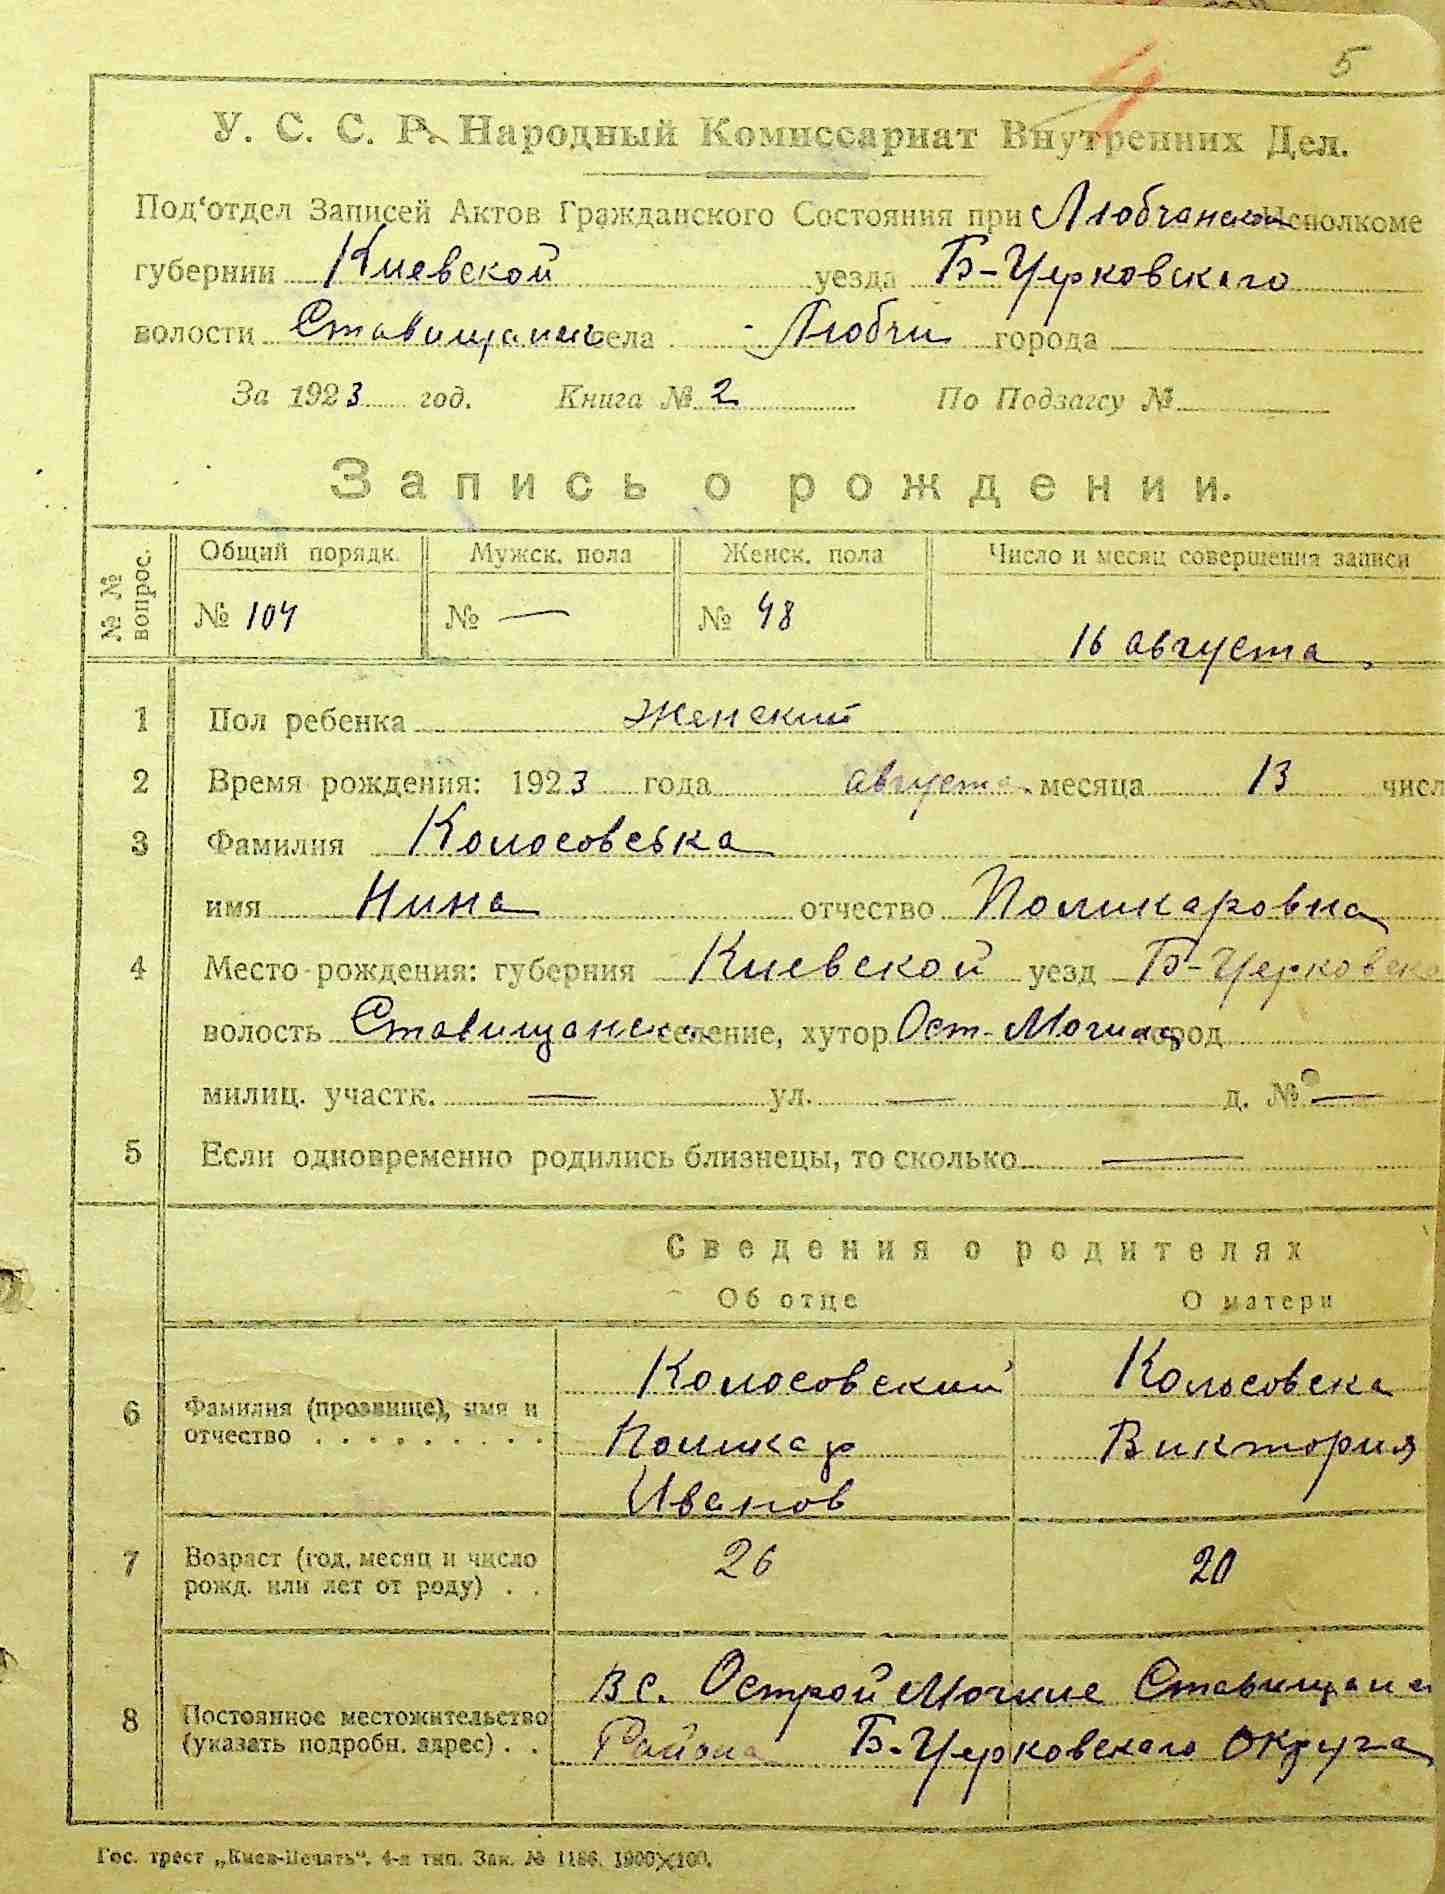 5
У. С. С. Р. Народный Комиссариат Внутренних Дел.
Под'отдел Записей Актов Гражданского Состояния при Любчанском Исполкоме
губернии Киевской уезда Б-Церковского
волости Ставищанск села Любчи города
За 1923 год. Книга № 2 По Подзагсу №
Запись о рождении.
№№ вопрос. Общий порядк. Мужск. пола Женск. пола Число и месяц совершения записи
№ 104 № — № 48 16 августа
1 Пол ребенка женский
2 Время рождения: 1923 года августа месяца 13 числ
3 Фамилия Колосовська
имя Нина отчество Поликаровна
4 Место рождения: губерния Киевской уезд Б-Церковск
волость Ставищанск селение, хутор Ост-Могила город
милиц. участк. — ул. — д. № —
5 Если одновременно родились близнецы, то сколько —
Сведения о родителях
Об отце О матери
6 Фамилия (прозвище), имя и отчество Колосовский Колосовска
Поликар Виктория
Иванов
7 Возраст (год, месяц и число рожд. или лет от роду) 26 20
8 Постоянное местожительство (указать подробн. адрес) В с. Острой Могиле Ставищанск
Района Б-Церковского Округа
Гос. трест „Киев-Печать“. 4-я тип. Зак. № 1186. 1000×100.